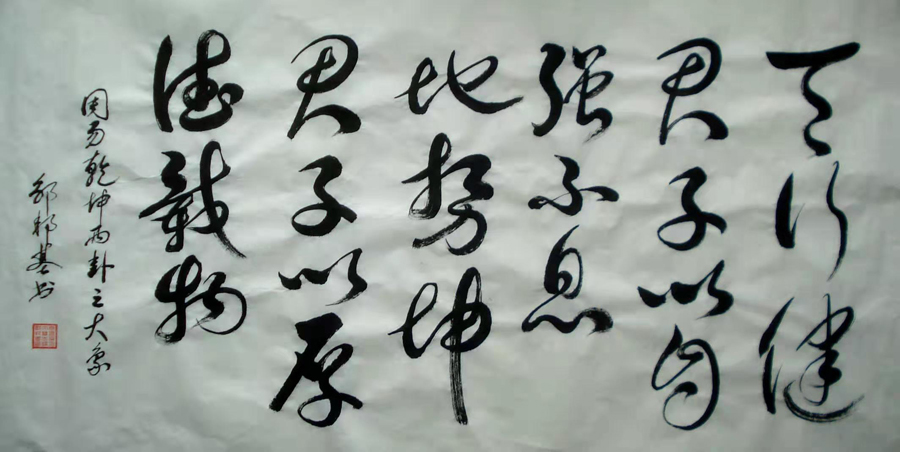 天行健
君子以自
强不息
地势坤
君子以厚
德载物
周易乾坤两卦之大象